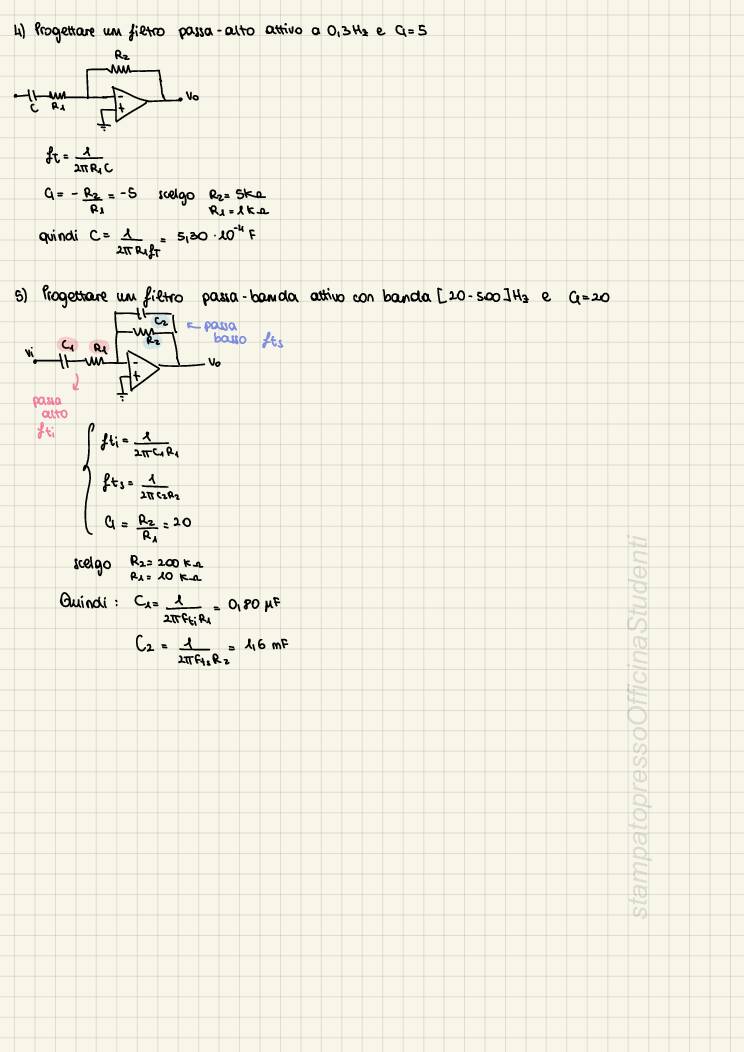 4) Progettare un filtro passa-alto attivo a 0,3Hz e G=5
R2
C R1 - + Vo
fT = 1/(2πR1C)
G = - R2/R1 = -5 scelgo R2= 5kΩ
R1 = 1kΩ
quindi C = 1/(2πR1fT) = 5,30 · 10⁻⁴ F
5) Progettare un filtro passa-banda attivo con banda [20-500]Hz e G=20
C2
R2
← passa
basso fts
Vi C1 R1 - + Vo
passa
alto
fti
fti = 1/(2πC1R1)
fts = 1/(2πC2R2)
G = R2/R1 = 20
scelgo R2= 200 kΩ
R1 = 10 kΩ
Quindi : C1 = 1/(2πftiR1) = 0,80 μF
C2 = 1/(2πftsR2) = 1,6 mF
stampatopressoOfficinaStudenti